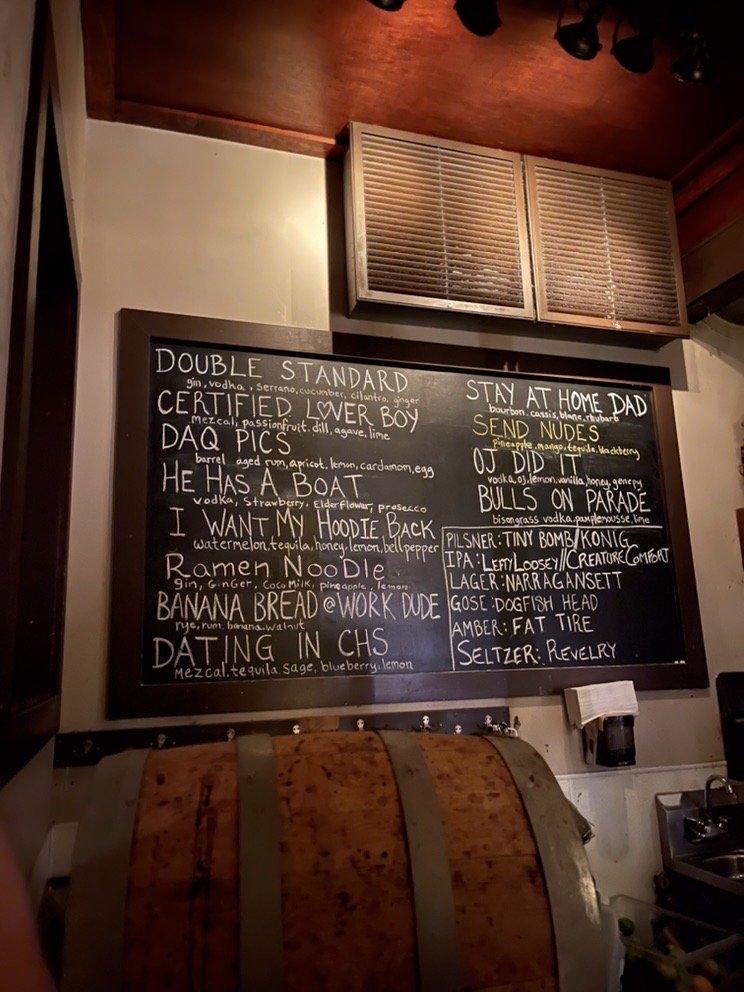 DOUBLE STANDARD
gin, vodka, serrano, cucumber, cilantro, ginger
CERTIFIED LOVER BOY
mezcal, passionfruit, dill, agave, lime
DAQ PICS
barrel aged rum, apricot, lemon, cardamon, egg
HE HAS A BOAT
vodka, strawberry, Elderflower, prosecco
I WANT MY HOODIE BACK
watermelon, tequila, honey, lemon, bell pepper
RAMEN NOODLE
gin, GinGer, CocoMilk, pineapple, lemon
BANANA BREAD @ WORK DUDE
rye, rum, banana, walnut
DATING IN CHS
Mezcal, tequila, sage, blueberry, lemon
STAY AT HOME DAD
bourbon, cassis, blanc, rhubarb
SEND NUDES
pineapple, mango, tequila, blackberry
OJ DID IT
vodka, oj, lemon, vanilla, honey, genepy
BULLS ON PARADE
bisongrass vodka, pamplemousse, lime
PILSNER: TINY BOMB/KONIG
IPA: LEFTY LOOSEY//CREATURE COMFORT
LAGER: NARRAGANSETT
GOSE: DOGFISH HEAD
AMBER: FAT TIRE
SELTZER: REVELRY